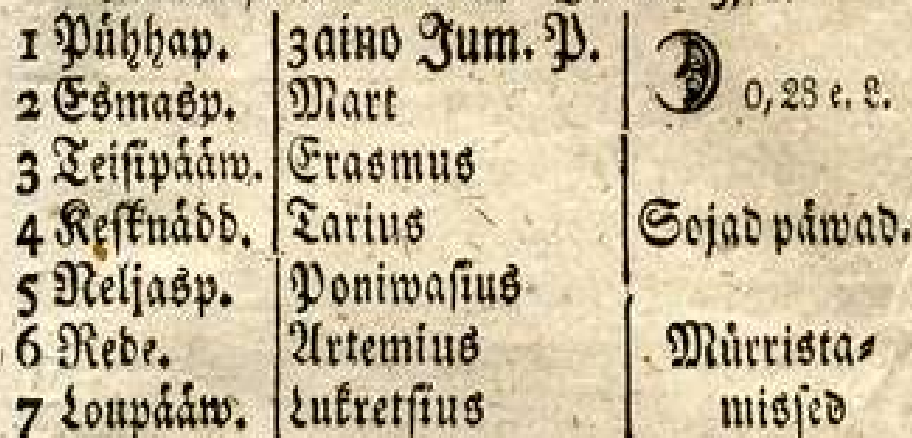 1 Pühhap. 3aino Jum. P.
2 Esmasp. Mart 0,28 e. L.
3 Teisipääw. Erasmus
4 Kesknädd. Tarius Sojad päwad.
5 Neljasp. Poniwasius
6 Rede. Artemius Mürrista⸗
7 Loupääw. Lukretsius missed